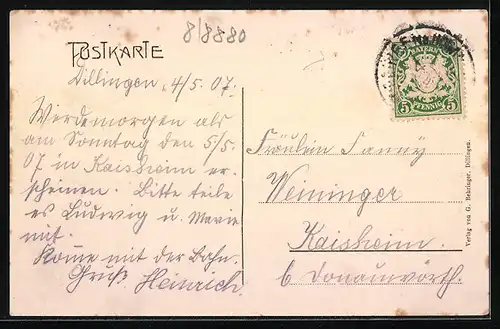 8/8880
POSTKARTE
Dillingen, 4/5. 07.
Werde morgen als
am Sonntag den 5/5.
07 in Kaisheim er-
scheinen. Bitte teile
es Ludwig u. Marie
mit.
Kome mit der Bahn.
Gruß Heinrich.
BAYERN
5 PFENNIG 5
Fräulein Fanny
Weininger
Kaisheim.
b. Donauwörth.
Verlag von G. Behringer, Dillingen.